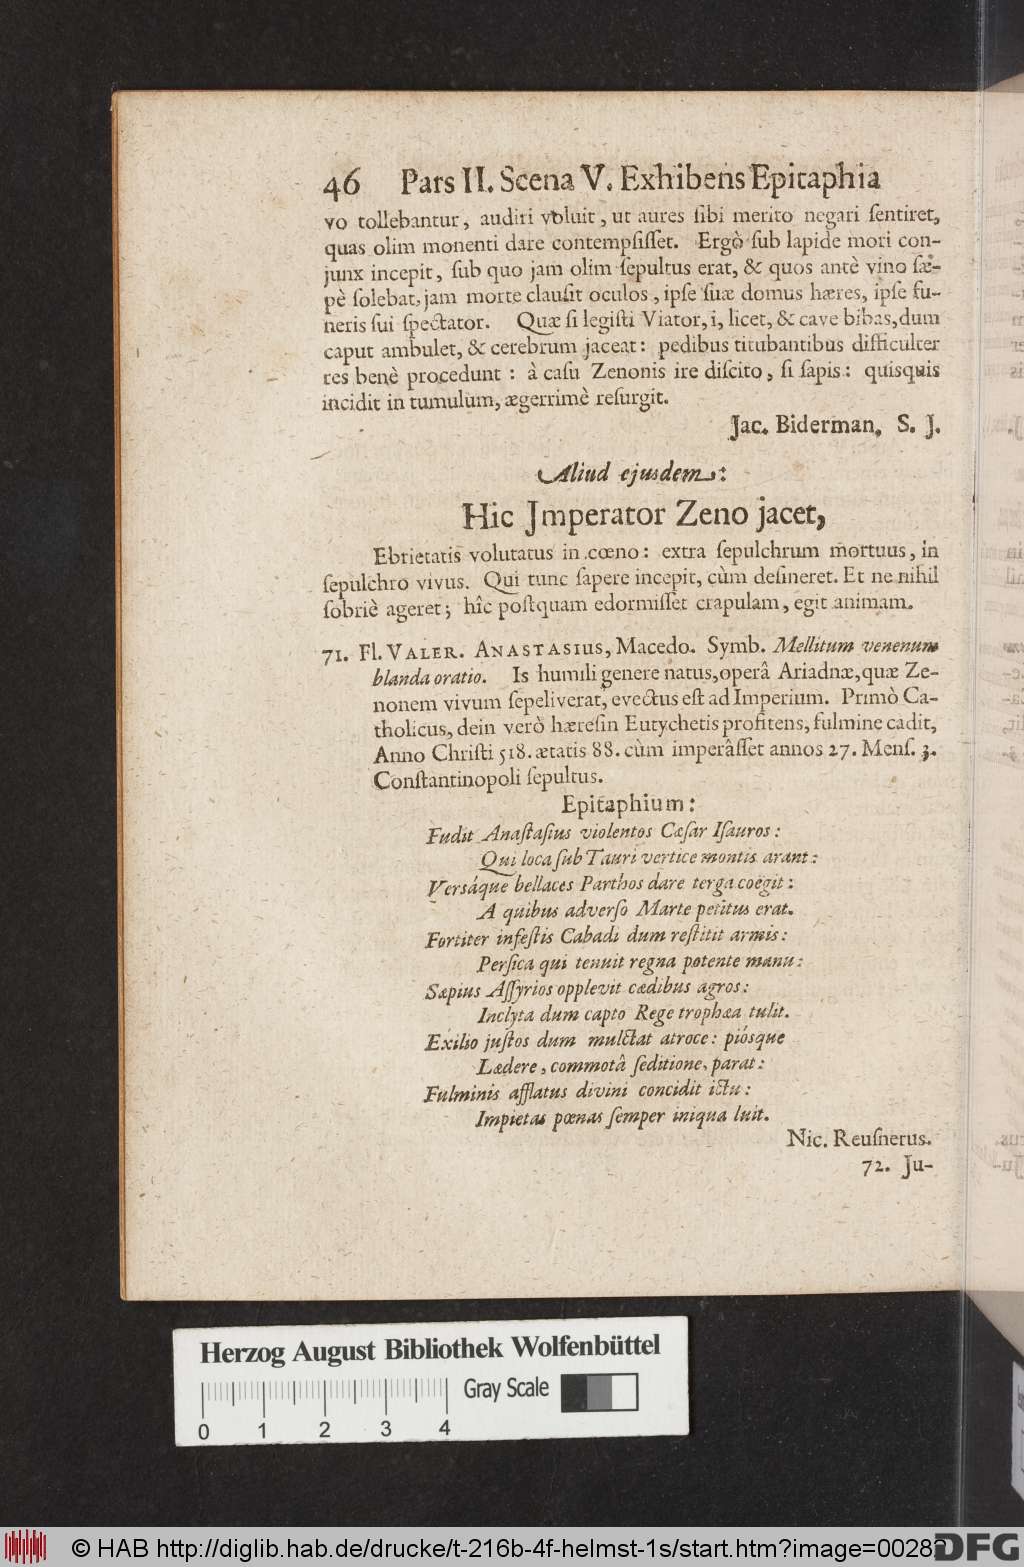 46 Pars II. Scena V. Exhibens Epitaphia
vo tollebantur, audiri voluit, ut aures sibi merito negari sentiret,
quas olim monenti dare contempsisset. Ergò sub lapide mori con-
junx incepit, sub quo jam olim sepultus erat, & quos antè vino sæ-
pè solebat, jam morte clausit oculos, ipse suæ domus hæres, ipse fu-
neris sui spectator. Quæ si legisti Viator, i, licet, & cave bibas, dum
caput ambulet, & cerebrum jaceat: pedibus titubantibus difficulter
res benè procedunt: à casu Zenonis ire discito, si sapis: quisquis
incidit in tumulum, ægerrimè resurgit.
Jac. Biderman, S. J.
Aliud ejusdem:
Hic Jmperator Zeno jacet,
Ebrietatis volutatus in cœno: extra sepulchrum mortuus, in
sepulchro vivus. Qui tunc sapere incepit, cùm desineret. Et ne nihil
sobriè ageret; hîc postquam edormisset crapulam, egit animam.
71. Fl. VALER. ANASTASIUS, Macedo. Symb. Mellitum venenum
blanda oratio. Is humili genere natus, operâ Ariadnæ, quæ Ze-
nonem vivum sepeliverat, evectus est ad Imperium. Primò Ca-
tholicus, dein verò hæresin Eutychetis profitens, fulmine cadit,
Anno Christi 518. ætatis 88. cùm imperâsset annos 27. Mens. 3.
Constantinopoli sepultus.
Epitaphium:
Fudit Anastasius violentos Cæsar Isauros:
Qui loca sub Tauri vertice montis arant:
Versáque bellaces Parthos dare terga coëgit:
A quibus adverso Marte petitus erat.
Fortiter infestis Cabadi dum restitit armis:
Persica qui tenuit regna potente manu:
Sæpius Assyrios opplevit cædibus agros:
Inclyta dum capto Rege trophæa tulit.
Exilio justos dum mulctat atroce: piósque
Lædere, commotâ seditione, parat:
Fulminis afflatus divini concidit ictu:
Impietas pœnas semper iniqua luit.
Nic. Reusnerus.
72. Ju-
Herzog August Bibliothek Wolfenbüttel
Gray Scale
0 1 2 3 4
© HAB http://diglib.hab.de/drucke/t-216b-4f-helmst-1s/start.htm?image=00282
DFG